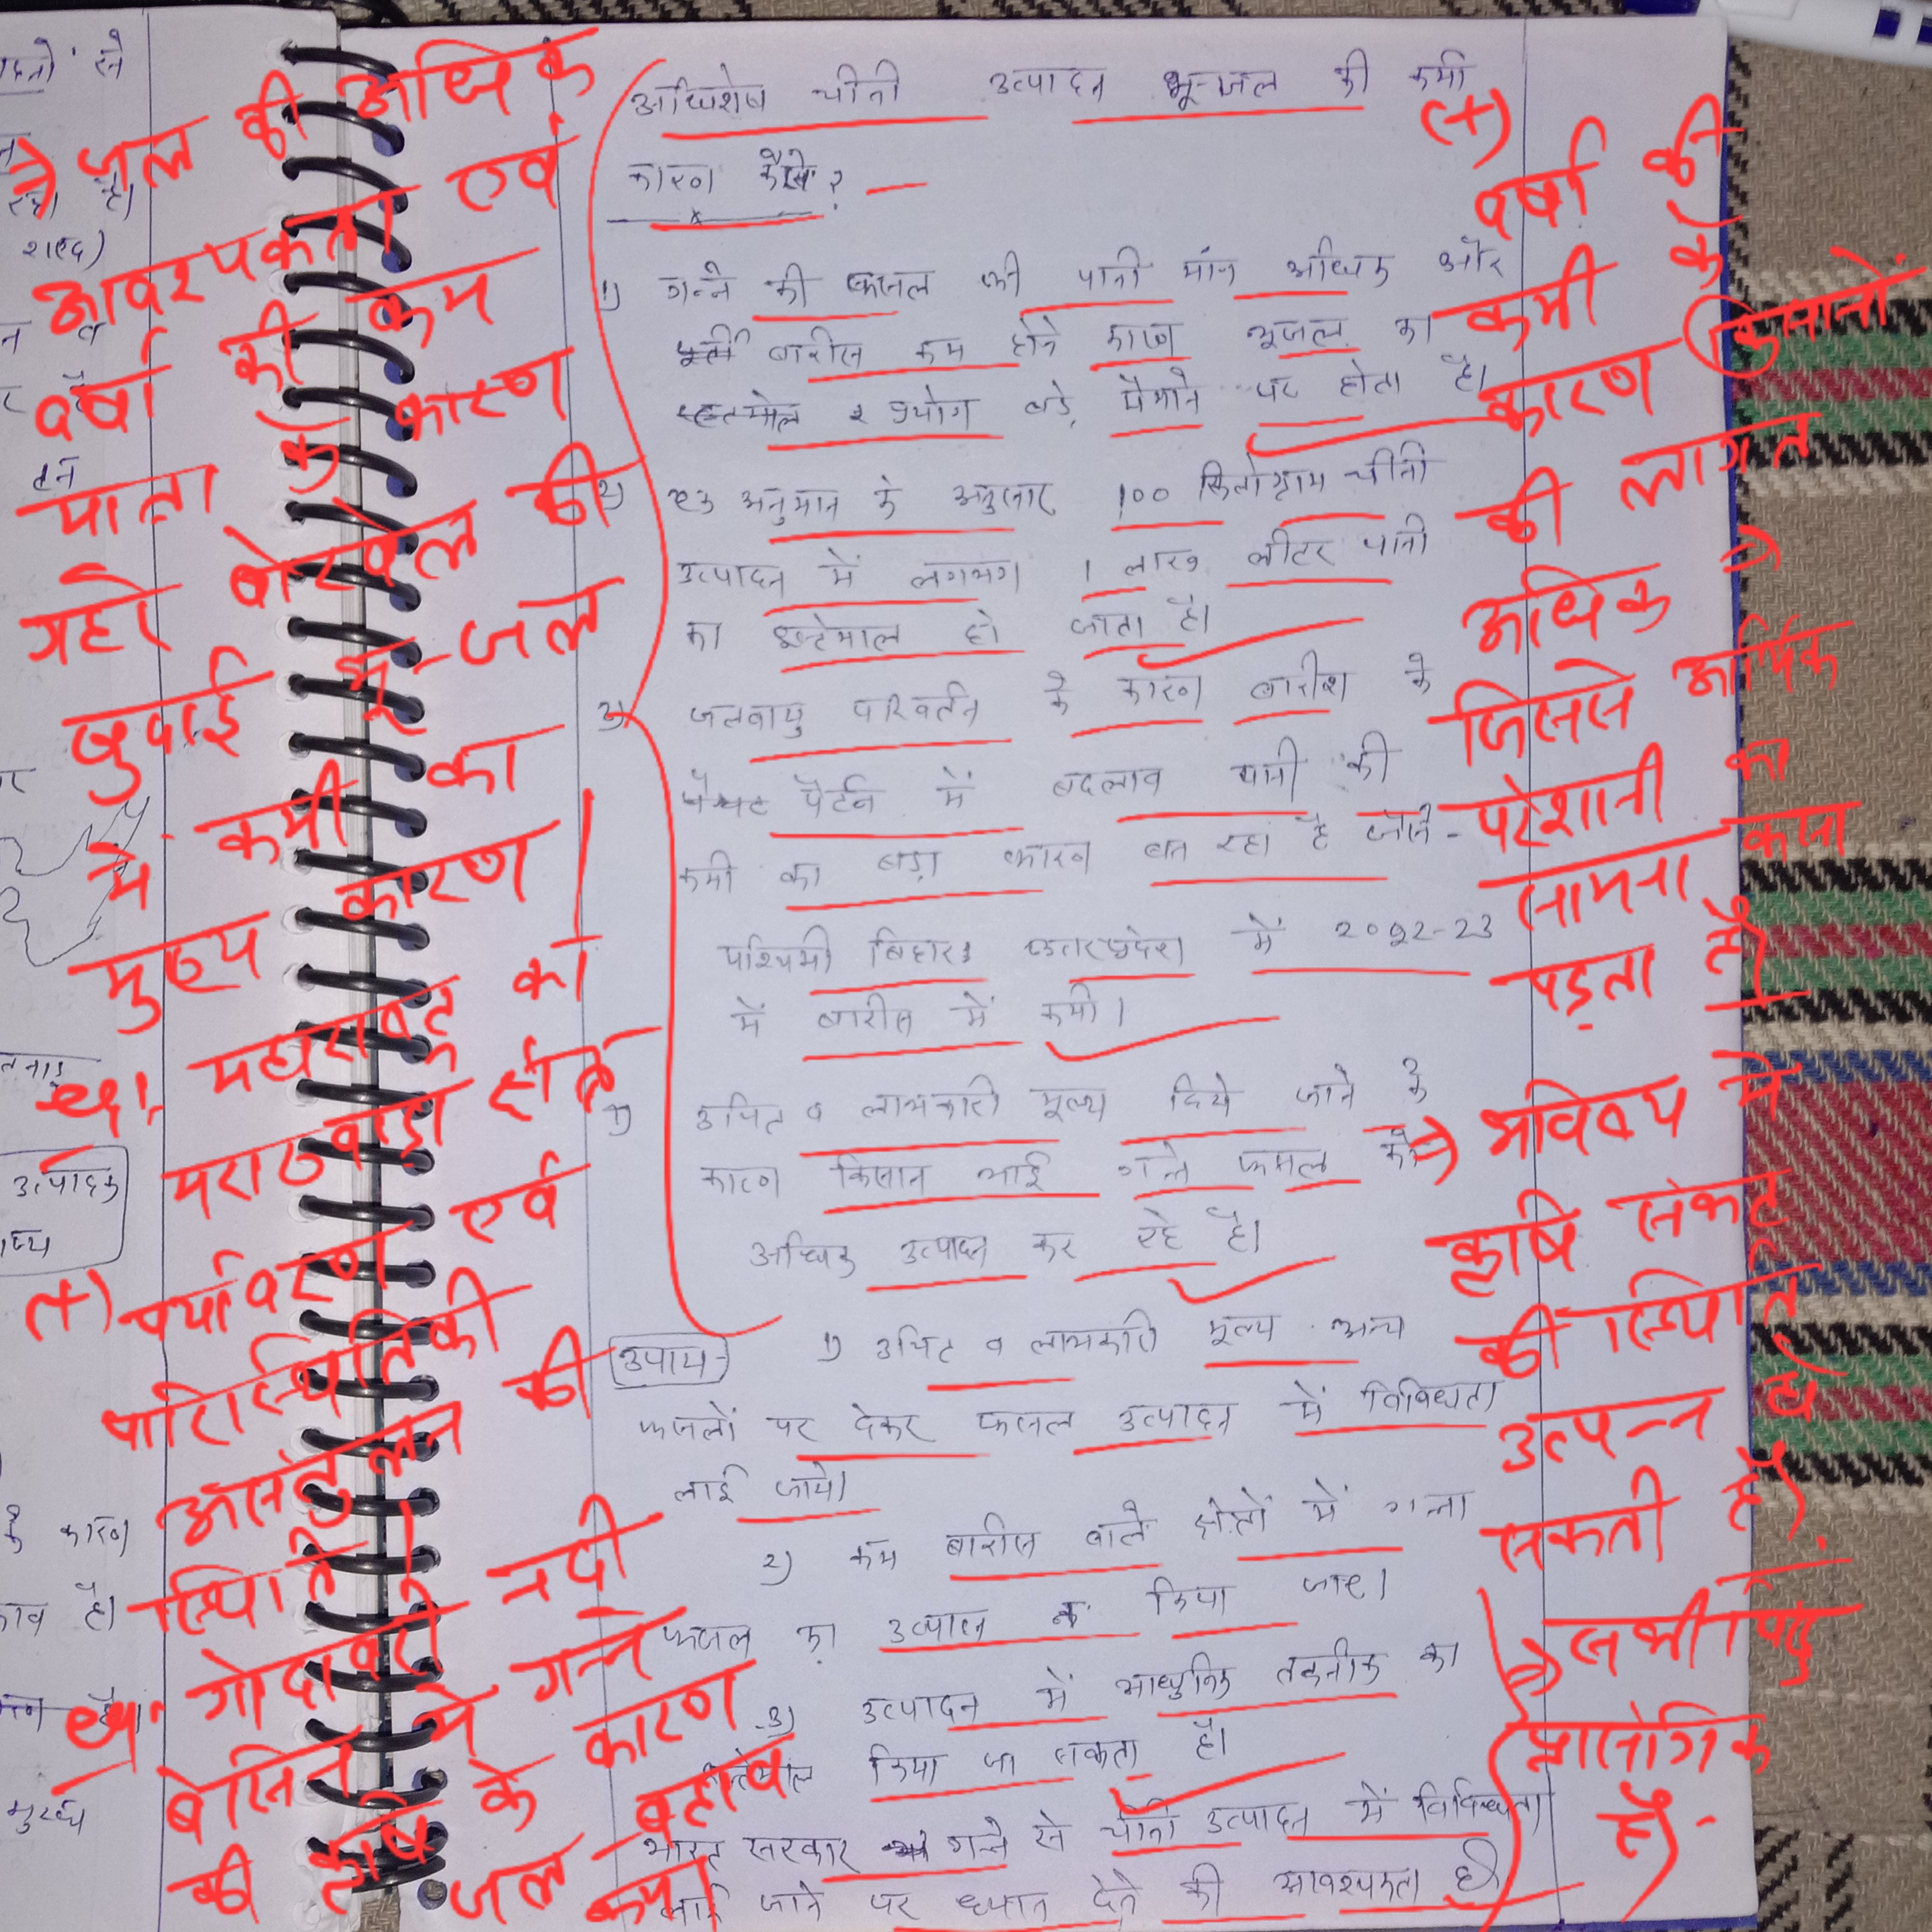 अधिशेष चीनी उत्पादन भू-जल की कमी
कारण कैसे?
1) गन्ने की फसल की पानी मांग अधिक और
बारीस कम होने कारण भूजल का
प्रयोग बड़े पैमाने पर होता है।
2) एक अनुमान के अनुसार 100 किलोग्राम चीनी
उत्पादन में लगभग 1 लाख लीटर पानी
का इस्तेमाल हो जाता है।
3) जलवायु परिवर्तन के कारण बारीश के
पैर्टन में बदलाव पानी की
कमी का बड़ा कारण बन रहा है जैसे-
पश्चिमी बिहार उत्तरप्रदेश में 2022-23
में बारीस में कमी।
उचित व लाभकारी मूल्य दिये जाने के
कारण किसान भाई गन्ने फसल को
अधिक उत्पादन कर रहे है।
उपाय- 1) उचित व लाभकारी मूल्य अन्य
फसलों पर देकर फसल उत्पादन में विविधता
लाई जाये।
2) कम बारीस वाले क्षेत्रों में गन्ना
फसल का उत्पादन न किया जाए।
3) उत्पादन में आधुनिक तकनीक का
इस्तेमाल किया जा सकता है।
भारत सरकार गन्ने से चीनी उत्पादन में विविधता
लाई जाने पर ध्यान देने की आवश्यकता है
→ जल की अधिक
आवश्यकता एवं
वर्षा की कम
मात्रा के कारण
गहरे बोरवेल की
खुदाई भू-जल
में कमी का
मुख्य कारण।
महाराष्ट्र का
मराठवाड़ा क्षेत्र
(+) पर्यावरण एवं
पारिस्थितिकी
असंतुलन की
स्थिति।
गोदावरी नदी
बेसिन में गन्ने
की कृषि के कारण
जल बहाव
कम।
(+)
वर्षा की
कमी के
कारण किसानों
की लागत
अधिक
जिससे आर्थिक
परेशानी का
सामना करना
पड़ता है
→ भविष्य में
कृषि संकट
की स्थिति
उत्पन्न हो
सकती है।
→ सभी बिंदु
प्रासंगिक
है।
उत्पादक
कारण
है।